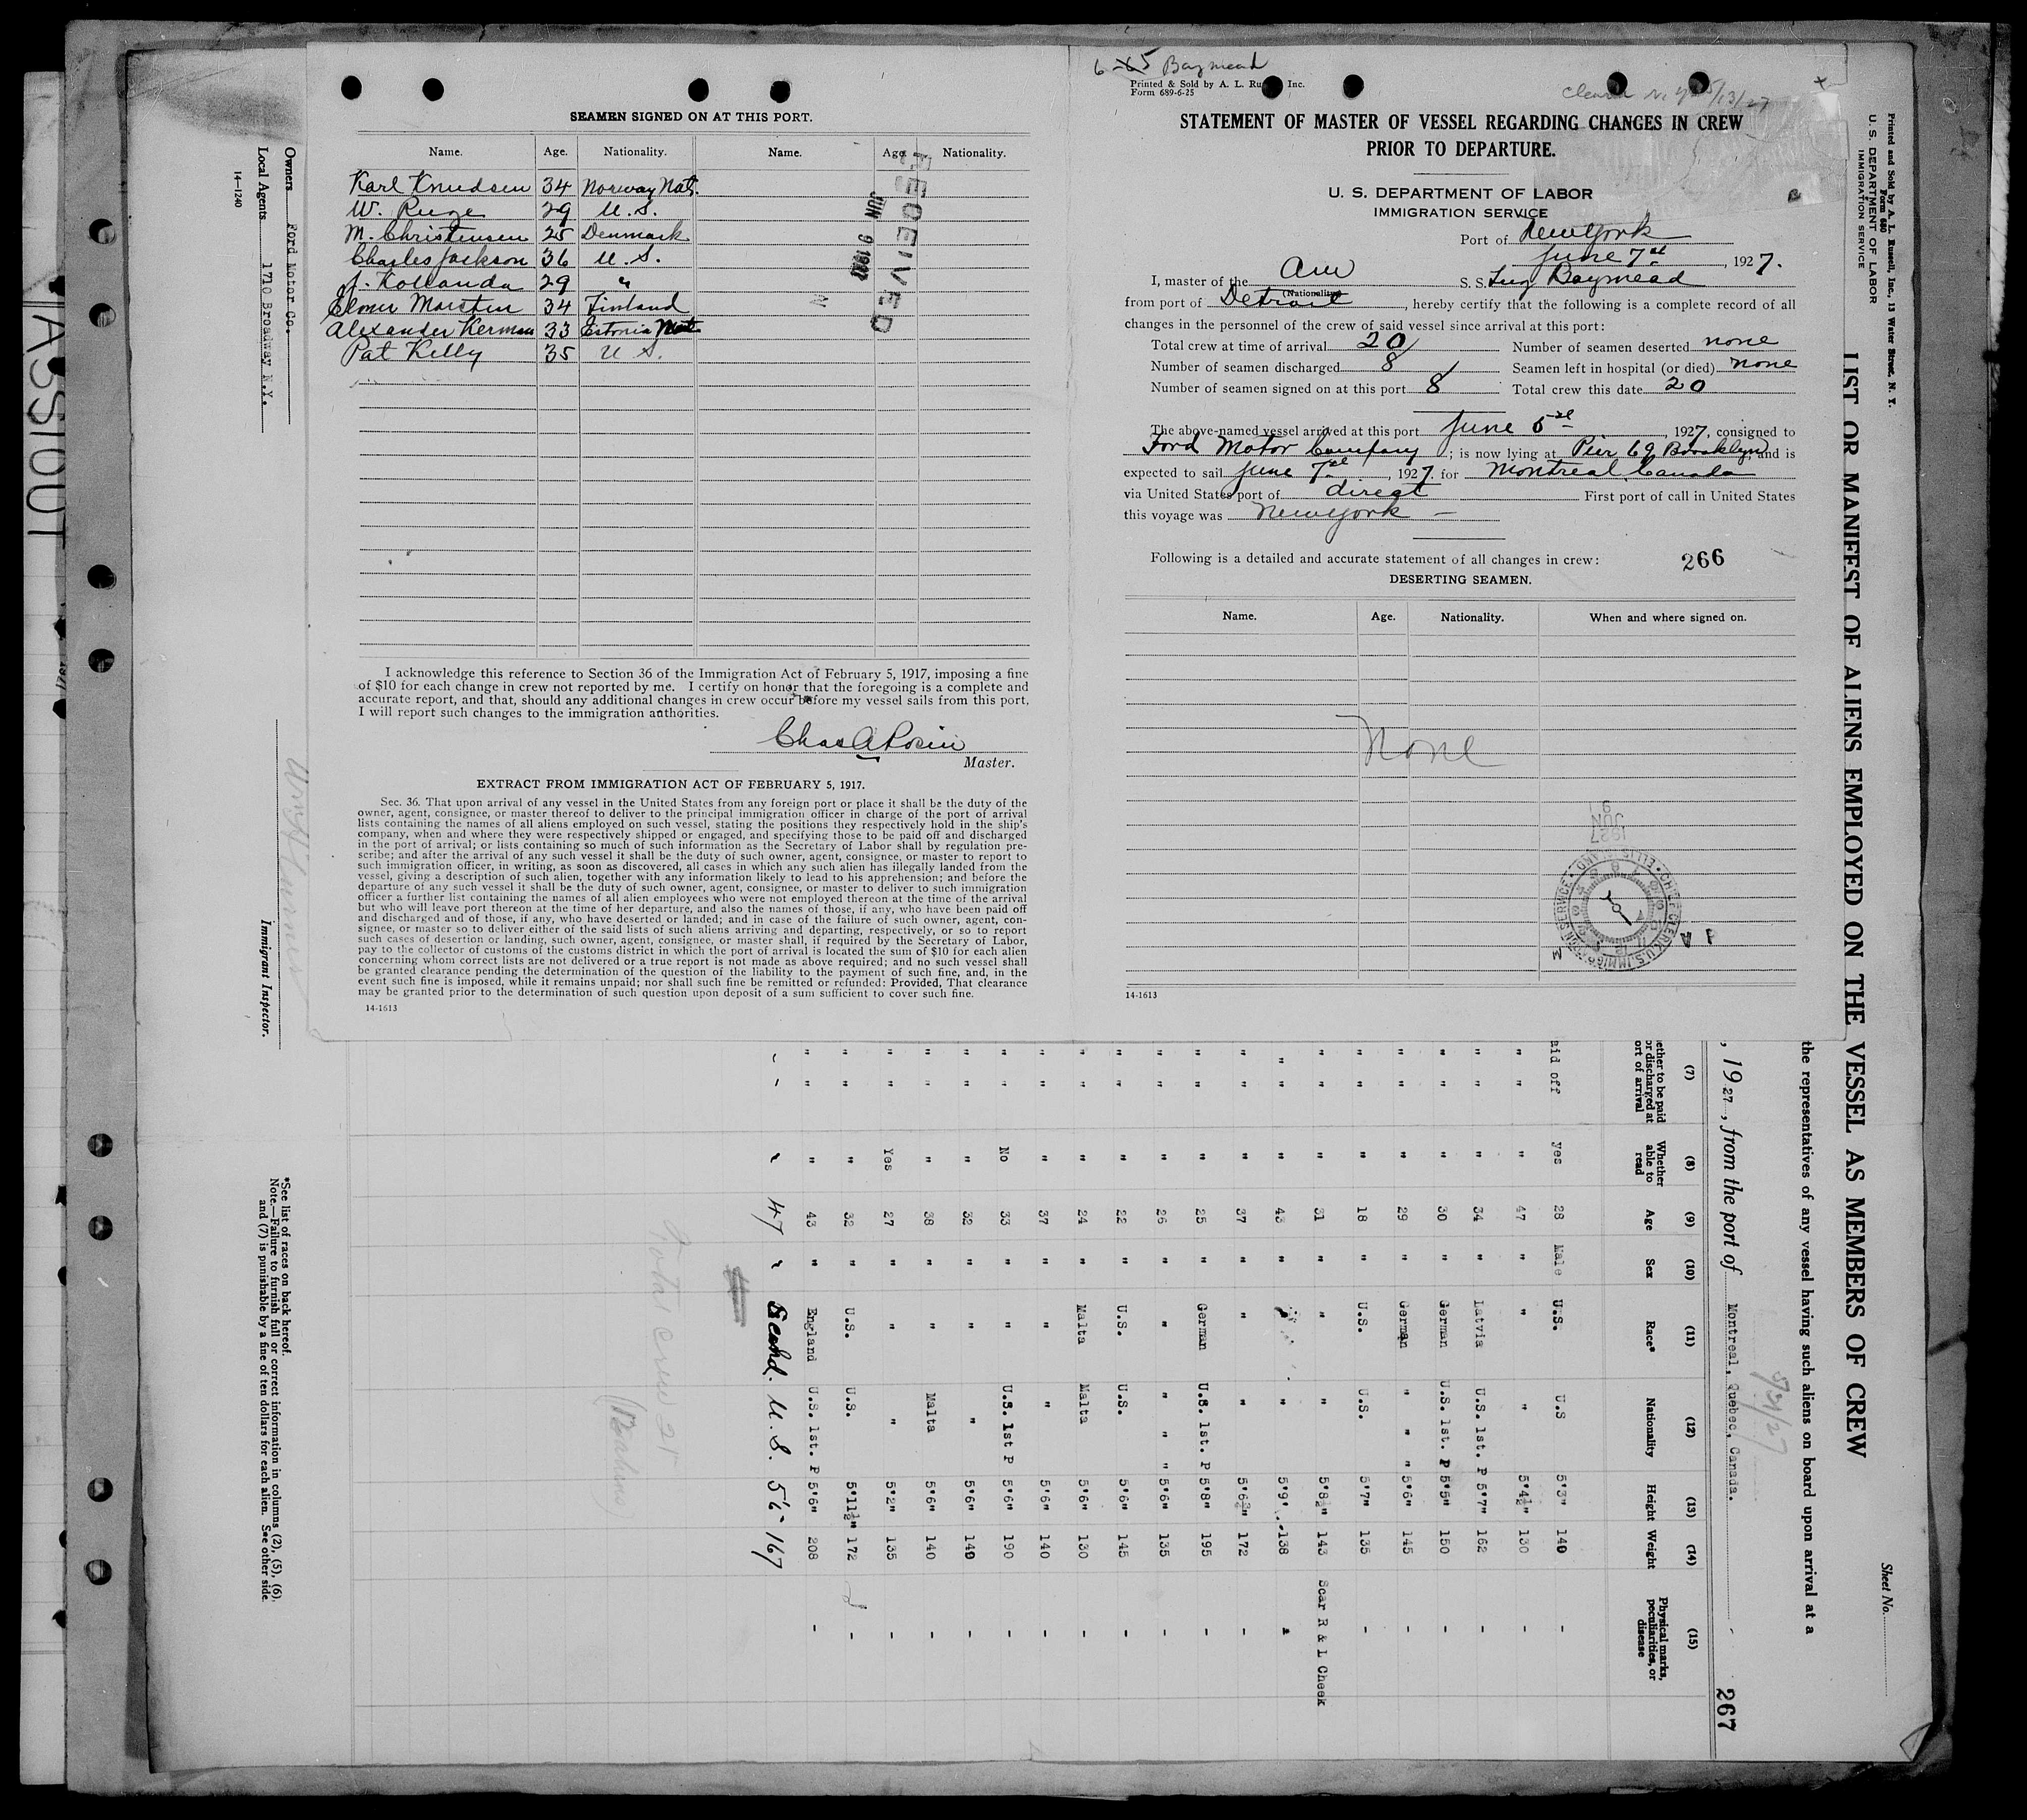 SEAMEN SIGNED ON AT THIS PORT.
Name. Age. Nationality. Name. Age. Nationality.
Karl Knudsen 34 Norway Nat.
W. Ruge 29 U.S.
M. Christensen 25 Denmark
Charles Jackson 36 U.S.
J. Kollanda 29 "
Elmer Marsten 34 Finland
Alexander Kerman 33 Estonia Nat
Pat Kelly 35 U S.
RECEIVED
JUN 9 1927
I acknowledge this reference to Section 36 of the Immigration Act of February 5, 1917, imposing a fine
of $10 for each change in crew not reported by me. I certify on honor that the foregoing is a complete and
accurate report, and that, should any additional changes in crew occur before my vessel sails from this port,
I will report such changes to the immigration authorities.
Chas A Rosin
Master.
EXTRACT FROM IMMIGRATION ACT OF FEBRUARY 5, 1917.
Sec. 36. That upon arrival of any vessel in the United States from any foreign port or place it shall be the duty of the
owner, agent, consignee, or master thereof to deliver to the principal immigration officer in charge of the port of arrival
lists containing the names of all aliens employed on such vessel, stating the positions they respectively hold in the ship's
company, when and where they were respectively shipped or engaged, and specifying those to be paid off and discharged
in the port of arrival; or lists containing so much of such information as the Secretary of Labor shall by regulation pre-
scribe; and after the arrival of any such vessel it shall be the duty of such owner, agent, consignee, or master to report to
such immigration officer, in writing, as soon as discovered, all cases in which any such alien has illegally landed from the
vessel, giving a description of such alien, together with any information likely to lead to his apprehension; and before the
departure of any such vessel it shall be the duty of such owner, agent, consignee, or master to deliver to such immigration
officer a further list containing the names of all alien employees who were not employed thereon at the time of the arrival
but who will leave port thereon at the time of her departure, and also the names of those, if any, who have been paid off
and discharged and of those, if any, who have deserted or landed; and in case of the failure of such owner, agent, con-
signee, or master so to deliver either of the said lists of such aliens arriving and departing, respectively, or so to report
such cases of desertion or landing, such owner, agent, consignee, or master shall, if required by the Secretary of Labor,
pay to the collector of customs of the customs district in which the port of arrival is located the sum of $10 for each alien
concerning whom correct lists are not delivered or a true report is not made as above required; and no such vessel shall
be granted clearance pending the determination of the question of the liability to the payment of such fine, and, in the
event such fine is imposed, while it remains unpaid; nor shall such fine be remitted or refunded: Provided, That clearance
may be granted prior to the determination of such question upon deposit of a sum sufficient to cover such fine.
14-1613
Baymead
Printed & Sold by A. L. Inc.
Form 689-6-25
STATEMENT OF MASTER OF VESSEL REGARDING CHANGES IN CREW
PRIOR TO DEPARTURE.
U. S. DEPARTMENT OF LABOR
IMMIGRATION SERVICE
Port of New York
June 7th, 1927.
I, master of the Am S. S. Tug Baymead
(Nationality)
from port of Detroit, hereby certify that the following is a complete record of all
changes in the personnel of the crew of said vessel since arrival at this port:
Total crew at time of arrival 20 Number of seamen deserted none
Number of seamen discharged 8 Seamen left in hospital (or died) none
Number of seamen signed on at this port 8 Total crew this date 20
The above-named vessel arrived at this port June 5th, 1927, consigned to
Ford Motor Company; is now lying at Pier 69 Brooklyn and is
expected to sail June 7th, 1927. for Montreal. Canada
via United States port of direct First port of call in United States
this voyage was New York —
Following is a detailed and accurate statement of all changes in crew: 266
DESERTING SEAMEN.
Name. Age. Nationality. When and where signed on.
None
JUN 1927
14-1613
Printed and Sold by A. L. Russell, Inc., 13 Water Street, N. Y.
Form 680
U. S. DEPARTMENT OF LABOR
IMMIGRATION SERVICE
Sheet No.
LIST OR MANIFEST OF ALIENS EMPLOYED ON THE VESSEL AS MEMBERS OF CREW
the representatives of any vessel having such aliens on board upon arrival at a
, 1927, from the port of Montreal, Quebec, Canada.
267
(7) (8) (9) (10) (11) (12) (13) (14) (15)
Whether able to read Age Sex Race* Nationality Height Weight Physical marks, peculiarities, or disease
aid off yes 28 Male U.S. U.S 5'3" 140 -
" " " 47 " " " 5'4½" 130 -
" " " 34 " Latvia U.S. 1st. P 5'7" 162 -
" " " 30 " German U.S. 1st. P 5'5" 150 -
" " " 29 " German " " " 5'6" 145 -
" " " 18 " U.S. U.S. 5'7" 135 -
" " " 31 " " " 5'8½" 143 Scar R & L Cheek
" " " 43 " " 5'9" 138 -
" " " 37 " " " 5'6¾" 172 -
" " " 25 " German U.S. 1st. P 5'8" 195 -
" " " 26 " " " " " 5'6" 135 -
" " " 22 " U.S. U.S. 5'6" 145 -
" " " 24 " Malta Malta 5'6" 130 -
" " " 37 " " " 5'6" 140 -
" " No 33 " " U.S. 1st P 5'6" 190 -
" " " 32 " " " 5'6" 140 -
" " " 38 " " Malta 5'6" 140 -
" " Yes 27 " " " 5'2" 135 -
" " " 32 " U.S. U.S. 5'11½" 172 -
" " " 43 " England U.S. 1st. P 5'6" 208 -
" " " 47 " Scand. U.S. 5'6" 167
Total crew 21
Owners Ford Motor Co.
Local Agents 1710 Broadway N.Y.
14-1240
Immigrant Inspector.
*See list of races on back hereof.
Note.—Failure to furnish full or correct information in columns (2), (5), (6),
and (7) is punishable by a fine of ten dollars for each alien. See other side.